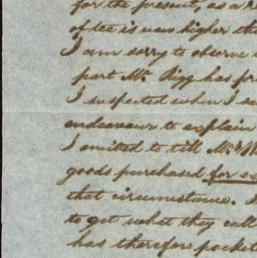 for the present, as a r
of tea is now higher tha
I am sorry to observe
part Mr. Rigg has pr
I suspected when I sa
endeavour to explain
I omitted to till Mr. M
goods purchased for
that circumstance.
to get what they call
has therefore pocket